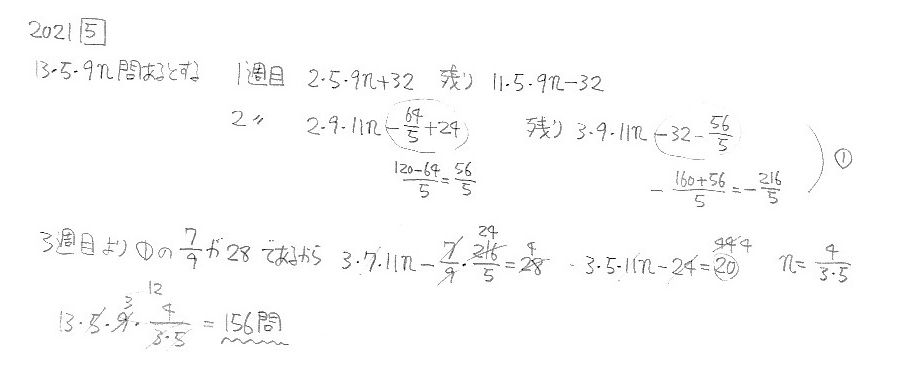 2021 5
13・5・9n問あるとする 1週目 2・5・9n+32 残り 11・5・9n-32
2〃 2・9・11n-64/5+24 残り 3・9・11n-32-56/5 ①
120-64/5=56/5 -160+56/5=-216/5
3週目より①の7/9が28であるから 3・7・11n-7/9・216/5=28 24 4 3・5・11n-24=20 44 4 n=4/3・5
13・5・9・4/3・5=156問 3 12